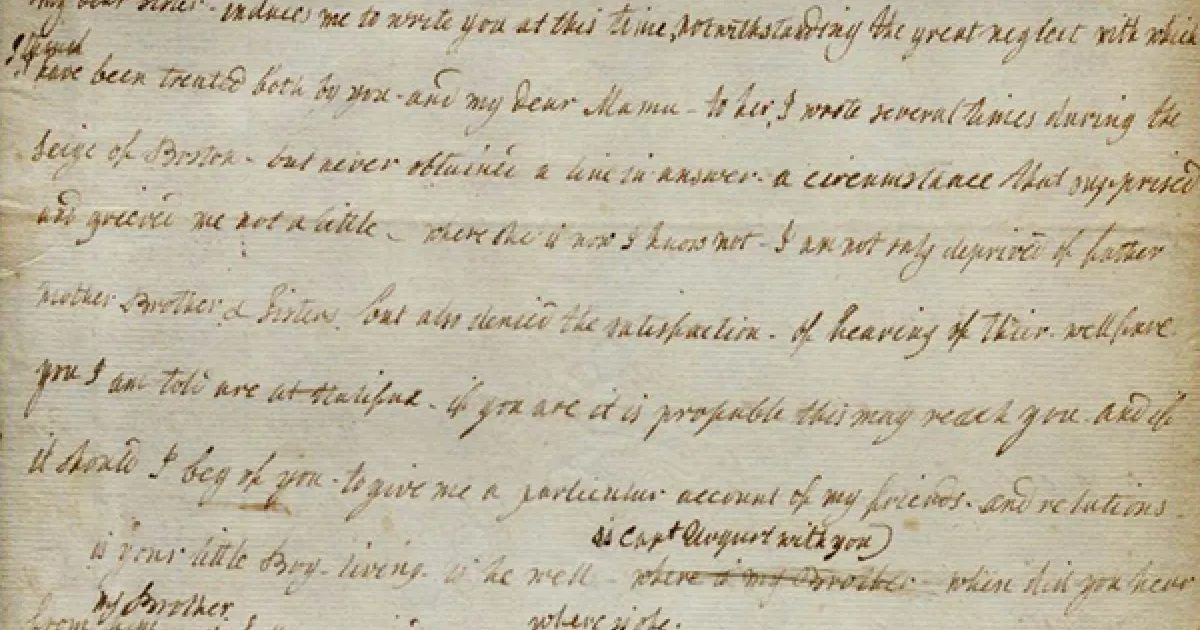 my dear sister - induces me to write you at this time, notwithstanding the great neglect with which
I have been treated both by you - and my dear Mama - to her, I wrote several times during the
seige of Boston - but never obtained a line in answer - a circumstance that surpprised
and grieved me not a little - where she is now I know not - I am not only deprived of father
mother Brother & Sisters. but also denied the satisfaction - of hearing of their - wellfare
you I am told are at Halifax - if you are it is propable this may reach you - and if
it should I beg of you - to give me a particular account of my friends - and relations
is Capt Urqurt with you)
is your little Boy - living - is he well - where is my Brother - when did you hear
my Brother
from him
where is he.